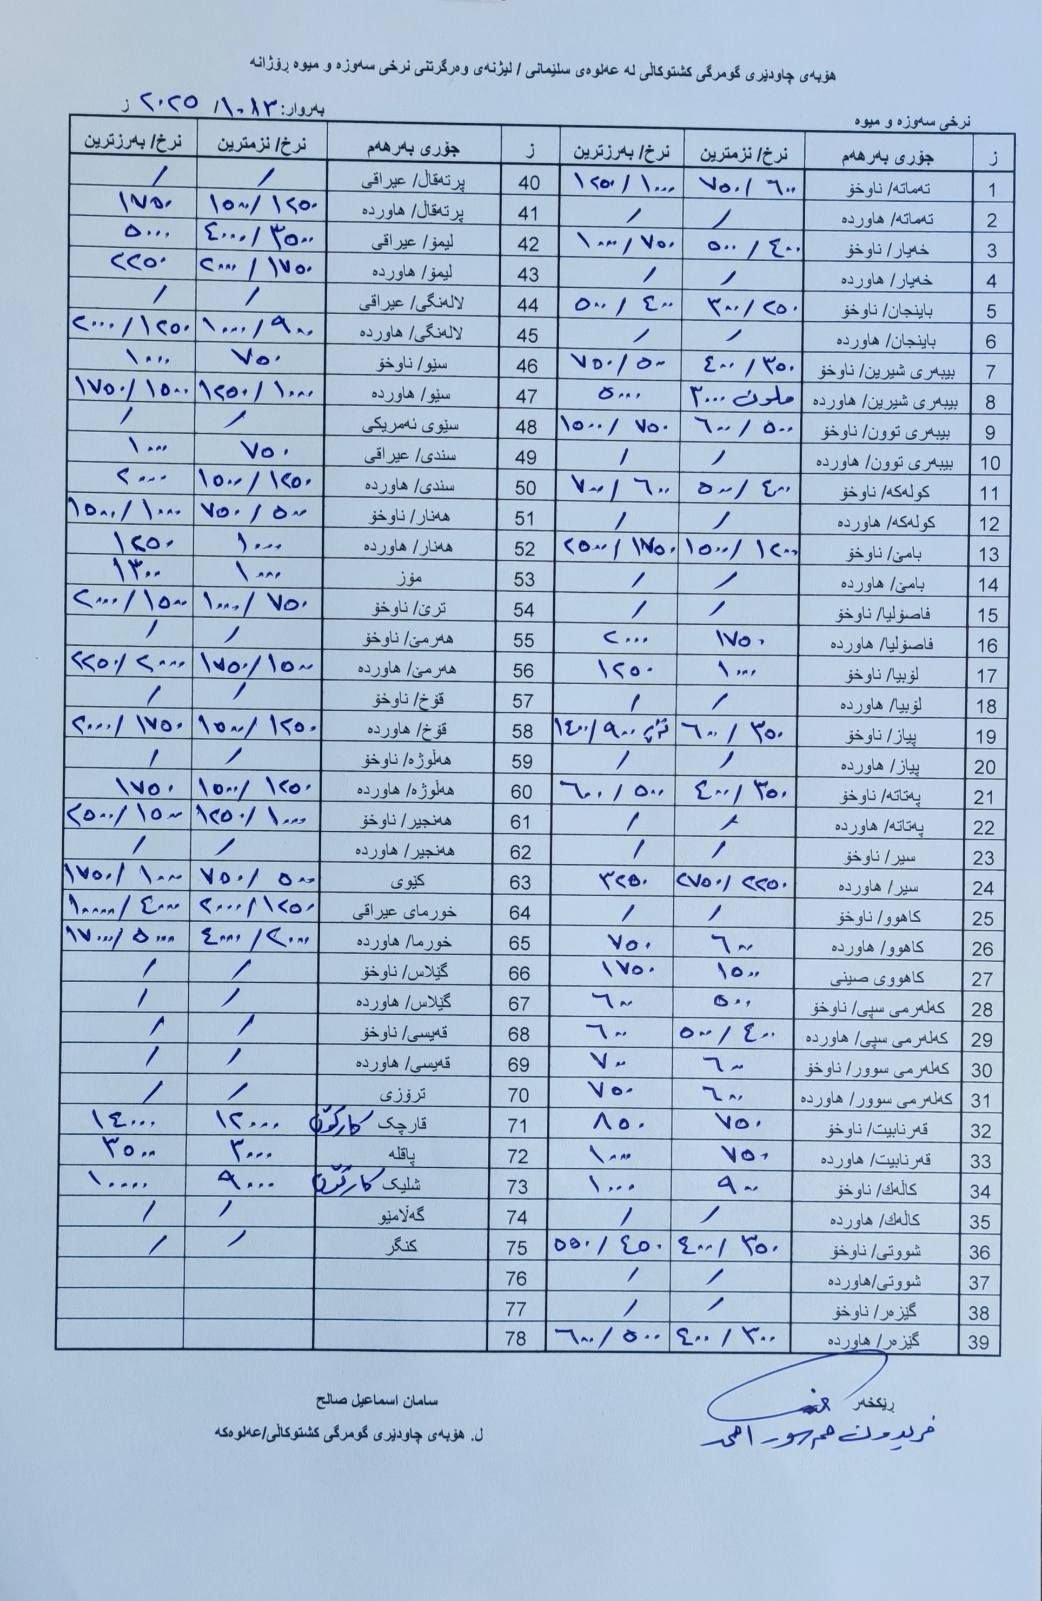 هۆبەی چاودێری گومرگی کشتوکاڵی لە عەلوەی سلێمانی / لیژنەی وەرگرتنی نرخی سەوزە و میوە ڕۆژانە
نرخی سەوزە و میوە
ز جۆری بەرهەم نرخ/ نزمترین نرخ/ بەرزترین ز جۆری بەرهەم نرخ/ نزمترین نرخ/ بەرزترین
1 تەماتە/ ناوخۆ ٦٠٠ / ٧٥٠ ١٠٠٠ / ١٢٥٠ 40 پرتەقاڵ/ عیراقی / /
2 تەماتە/ هاوردە / / 41 پرتەقاڵ/ هاوردە ١٢٥٠ / ١٥٠٠ ١٧٥٠
3 خەیار/ ناوخۆ ٤٠٠ / ٥٠٠ ٧٥٠ / ١٠٠٠ 42 لیمۆ/ عیراقی ٣٥٠٠ / ٤٠٠٠ ٥٠٠٠
4 خەیار/ هاوردە / / 43 لیمۆ/ هاوردە ١٧٥٠ / ٢٠٠٠ ٢٢٥٠
5 باینجان/ ناوخۆ ٢٥٠ / ٣٠٠ ٤٠٠ / ٥٠٠ 44 لالەنگی/ عیراقی / /
6 باینجان/ هاوردە / / 45 لالەنگی/ هاوردە ٩٠٠ / ١٠٠٠ ١٢٥٠ / ٢٠٠٠
7 بیبەری شیرین/ ناوخۆ ٣٥٠ / ٤٠٠ ٥٠٠ / ٧٥٠ 46 سێو/ ناوخۆ ٧٥٠ ١٠٠٠
8 بیبەری شیرین/ هاوردە ملون ٣٠٠٠ ٥٠٠٠ 47 سێو/ هاوردە ١٠٠٠ / ١٢٥٠ ١٥٠٠ / ١٧٥٠
9 بیبەری توون/ ناوخۆ ٥٠٠ / ٦٠٠ ٧٥٠ / ١٥٠٠ 48 سێوی ئەمریکی / /
10 بیبەری توون/ هاوردە / / 49 سندی/ عیراقی ٧٥٠ ١٠٠٠
11 کولەکە/ ناوخۆ ٤٠٠ / ٥٠٠ ٦٠٠ / ٧٠٠ 50 سندی/ هاوردە ١٢٥٠ / ١٥٠٠ ٢٠٠٠
12 کولەکە/ هاوردە / / 51 هەنار/ ناوخۆ ٥٠٠ / ٧٥٠ ١٠٠٠ / ١٥٠٠
13 بامێ/ ناوخۆ ١٢٠٠ / ١٥٠٠ ١٧٥٠ / ٢٥٠٠ 52 هەنار/ هاوردە ١٠٠٠ ١٢٥٠
14 بامێ/ هاوردە / / 53 مۆز ١٠٠٠ ١٣٠٠
15 فاصۆلیا/ ناوخۆ / / 54 ترێ/ ناوخۆ ٧٥٠ / ١٠٠٠ ١٥٠٠ / ٢٠٠٠
16 فاصۆلیا/ هاوردە ١٧٥٠ ٢٠٠٠ 55 هەرمێ/ ناوخۆ / /
17 لۆبیا/ ناوخۆ ١٠٠٠ ١٢٥٠ 56 هەرمێ/ هاوردە ١٥٠٠ / ١٧٥٠ ٢٠٠٠ / ٢٢٥٠
18 لۆبیا/ هاوردە / / 57 قۆخ/ ناوخۆ / /
19 پیاز/ ناوخۆ ٣٥٠ / ٦٠٠ ٩٠٠ / ١٤٠٠ 58 قۆخ/ هاوردە ١٢٥٠ / ١٥٠٠ ١٧٥٠ / ٢٠٠٠
20 پیاز/ هاوردە / / 59 هەڵوژە/ ناوخۆ / /
21 پەتاتە/ ناوخۆ ٣٥٠ / ٤٠٠ ٥٠٠ / ٦٠٠ 60 هەڵوژە/ هاوردە ١٢٥٠ / ١٥٠٠ ١٧٥٠
22 پەتاتە/ هاوردە / / 61 هەنجیر/ ناوخۆ ١٠٠٠ / ١٢٥٠ ١٥٠٠ / ٢٥٠٠
23 سیر/ ناوخۆ / / 62 هەنجیر/ هاوردە / /
24 سیر/ هاوردە ٢٢٥٠ / ٢٧٥٠ ٣٢٥٠ 63 کێوی ٥٠٠ / ٧٥٠ ١٠٠٠ / ١٧٥٠
25 کاهوو/ ناوخۆ / / 64 خورمای عیراقی ١٢٥٠ / ٢٠٠٠ ٤٠٠٠ / ١٠٠٠٠
26 کاهوو/ هاوردە ٦٠٠ ٧٥٠ 65 خورما/ هاوردە ٢٠٠٠ / ٤٠٠٠ ٥٠٠٠ / ١٧٠٠٠
27 کاهووی صینی ١٥٠٠ ١٧٥٠ 66 گێلاس/ ناوخۆ / /
28 کەلەرمی سپی/ ناوخۆ ٥٠٠ ٦٠٠ 67 گێلاس/ هاوردە / /
29 کەلەرمی سپی/ هاوردە ٤٠٠ / ٥٠٠ ٦٠٠ 68 قەیسی/ ناوخۆ / /
30 کەلەرمی سوور/ ناوخۆ ٦٠٠ ٧٠٠ 69 قەیسی/ هاوردە / /
31 کەلەرمی سوور/ هاوردە ٦٠٠ ٧٥٠ 70 ترۆزی / /
32 قەرنابیت/ ناوخۆ ٧٥٠ ٨٥٠ 71 قارچک کارتۆن ١٢٠٠٠ ١٤٠٠٠
33 قەرنابیت/ هاوردە ٧٥٠ ١٠٠٠ 72 پاقلە ٣٠٠٠ ٣٥٠٠
34 کاڵەك/ ناوخۆ ٩٠٠ ١٠٠٠ 73 شلیک کارتۆن ٩٠٠٠ ١٠٠٠٠
35 کاڵەك/ هاوردە / / 74 گەڵامێو / /
36 شووتی/ ناوخۆ ٣٥٠ / ٤٠٠ ٤٥٠ / ٥٥٠ 75 کنگر / /
37 شووتی/هاوردە / / 76
38 گێزەر/ ناوخۆ / / 77
39 گێزەر/ هاوردە ٣٠٠ / ٤٠٠ ٥٠٠ / ٦٠٠ 78
ڕێکخەر
سامان اسماعیل صالح
ل. هۆبەی چاودێری گومرگی کشتوکاڵی/عەلوەکە